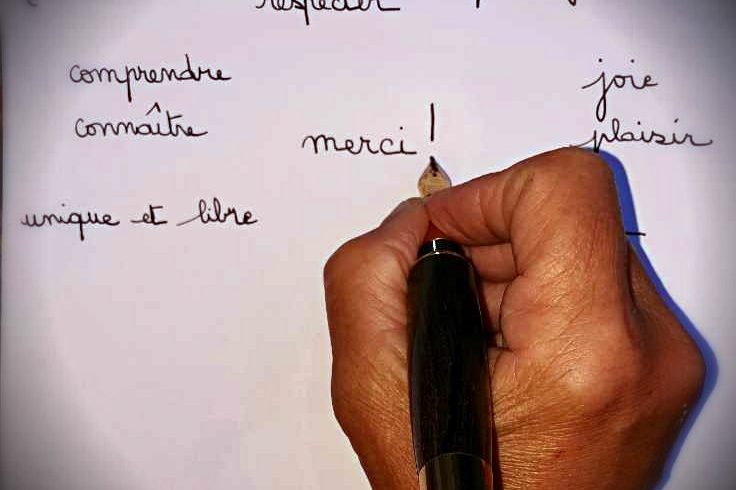 respecter
comprendre
joie
connaître
merci !
plaisir
unique et libre